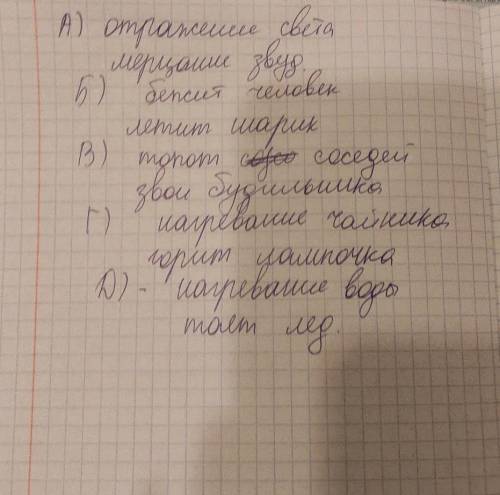 А) отражение света
мерцание звуд.
Б) бежит человек
летит шарик
В) топот соседей
звон будильника
Г) нагревание чайника
горит лампочка
Д) - нагревание воды
тает лед.